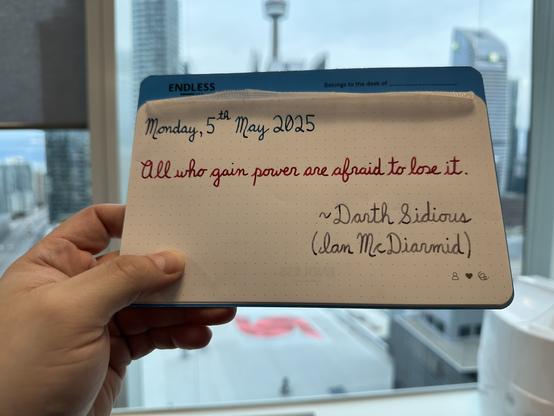 ENDLESS
Belongs to the desk of
Monday, 5th May 2025
All who gain power are afraid to lose it.
~Darth Sidious
(Ian McDiarmid)